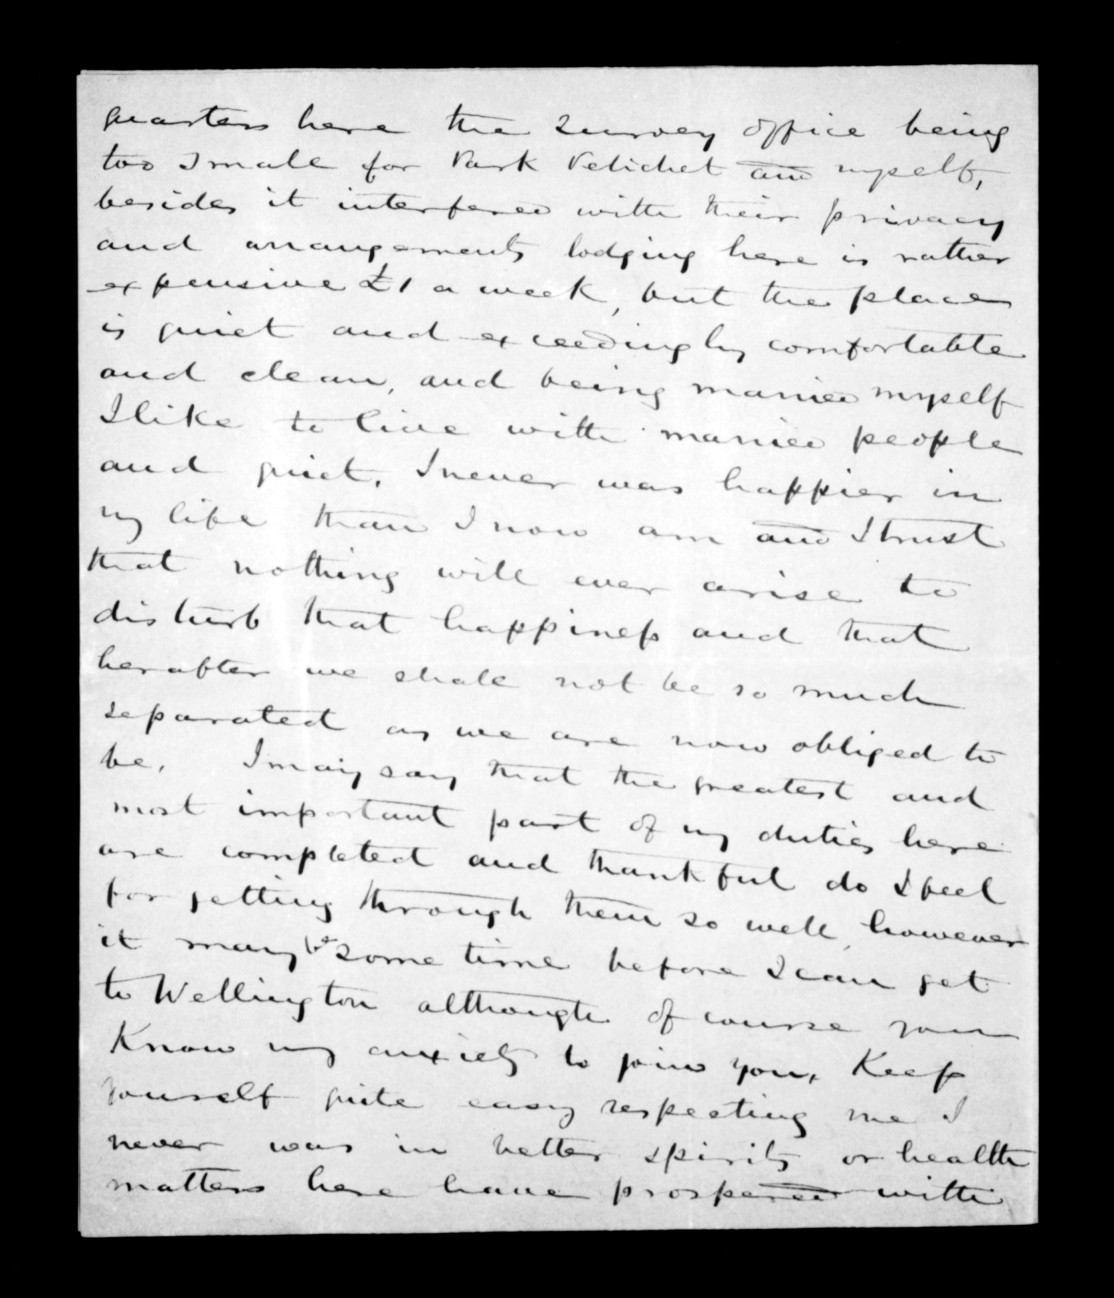 quarters here the Survey office being
too Small for Park Pelichet and myself,
besides it interfered with their privacy
and arrangements lodging here is rather
expensive £1 a week, but the place
is quiet and exceedingly comfortable
and clean, and being married myself
I like to live with married people
and quiet, I never was happier in
my life than I now am and I trust
that nothing will ever arise to
disturb that happiness and that
herafter we shall not be so much
separated as we are now obliged to
be. I may say that the greatest and
most important part of my duties here
are completed and thankful do I feel
for getting through them so well, however
it may be some time before I can get
to Wellington although of course you
Know my anxiety to join you, Keep
yourself quite easy respecting me I
never was in better spirits or health
matters here have prospered with